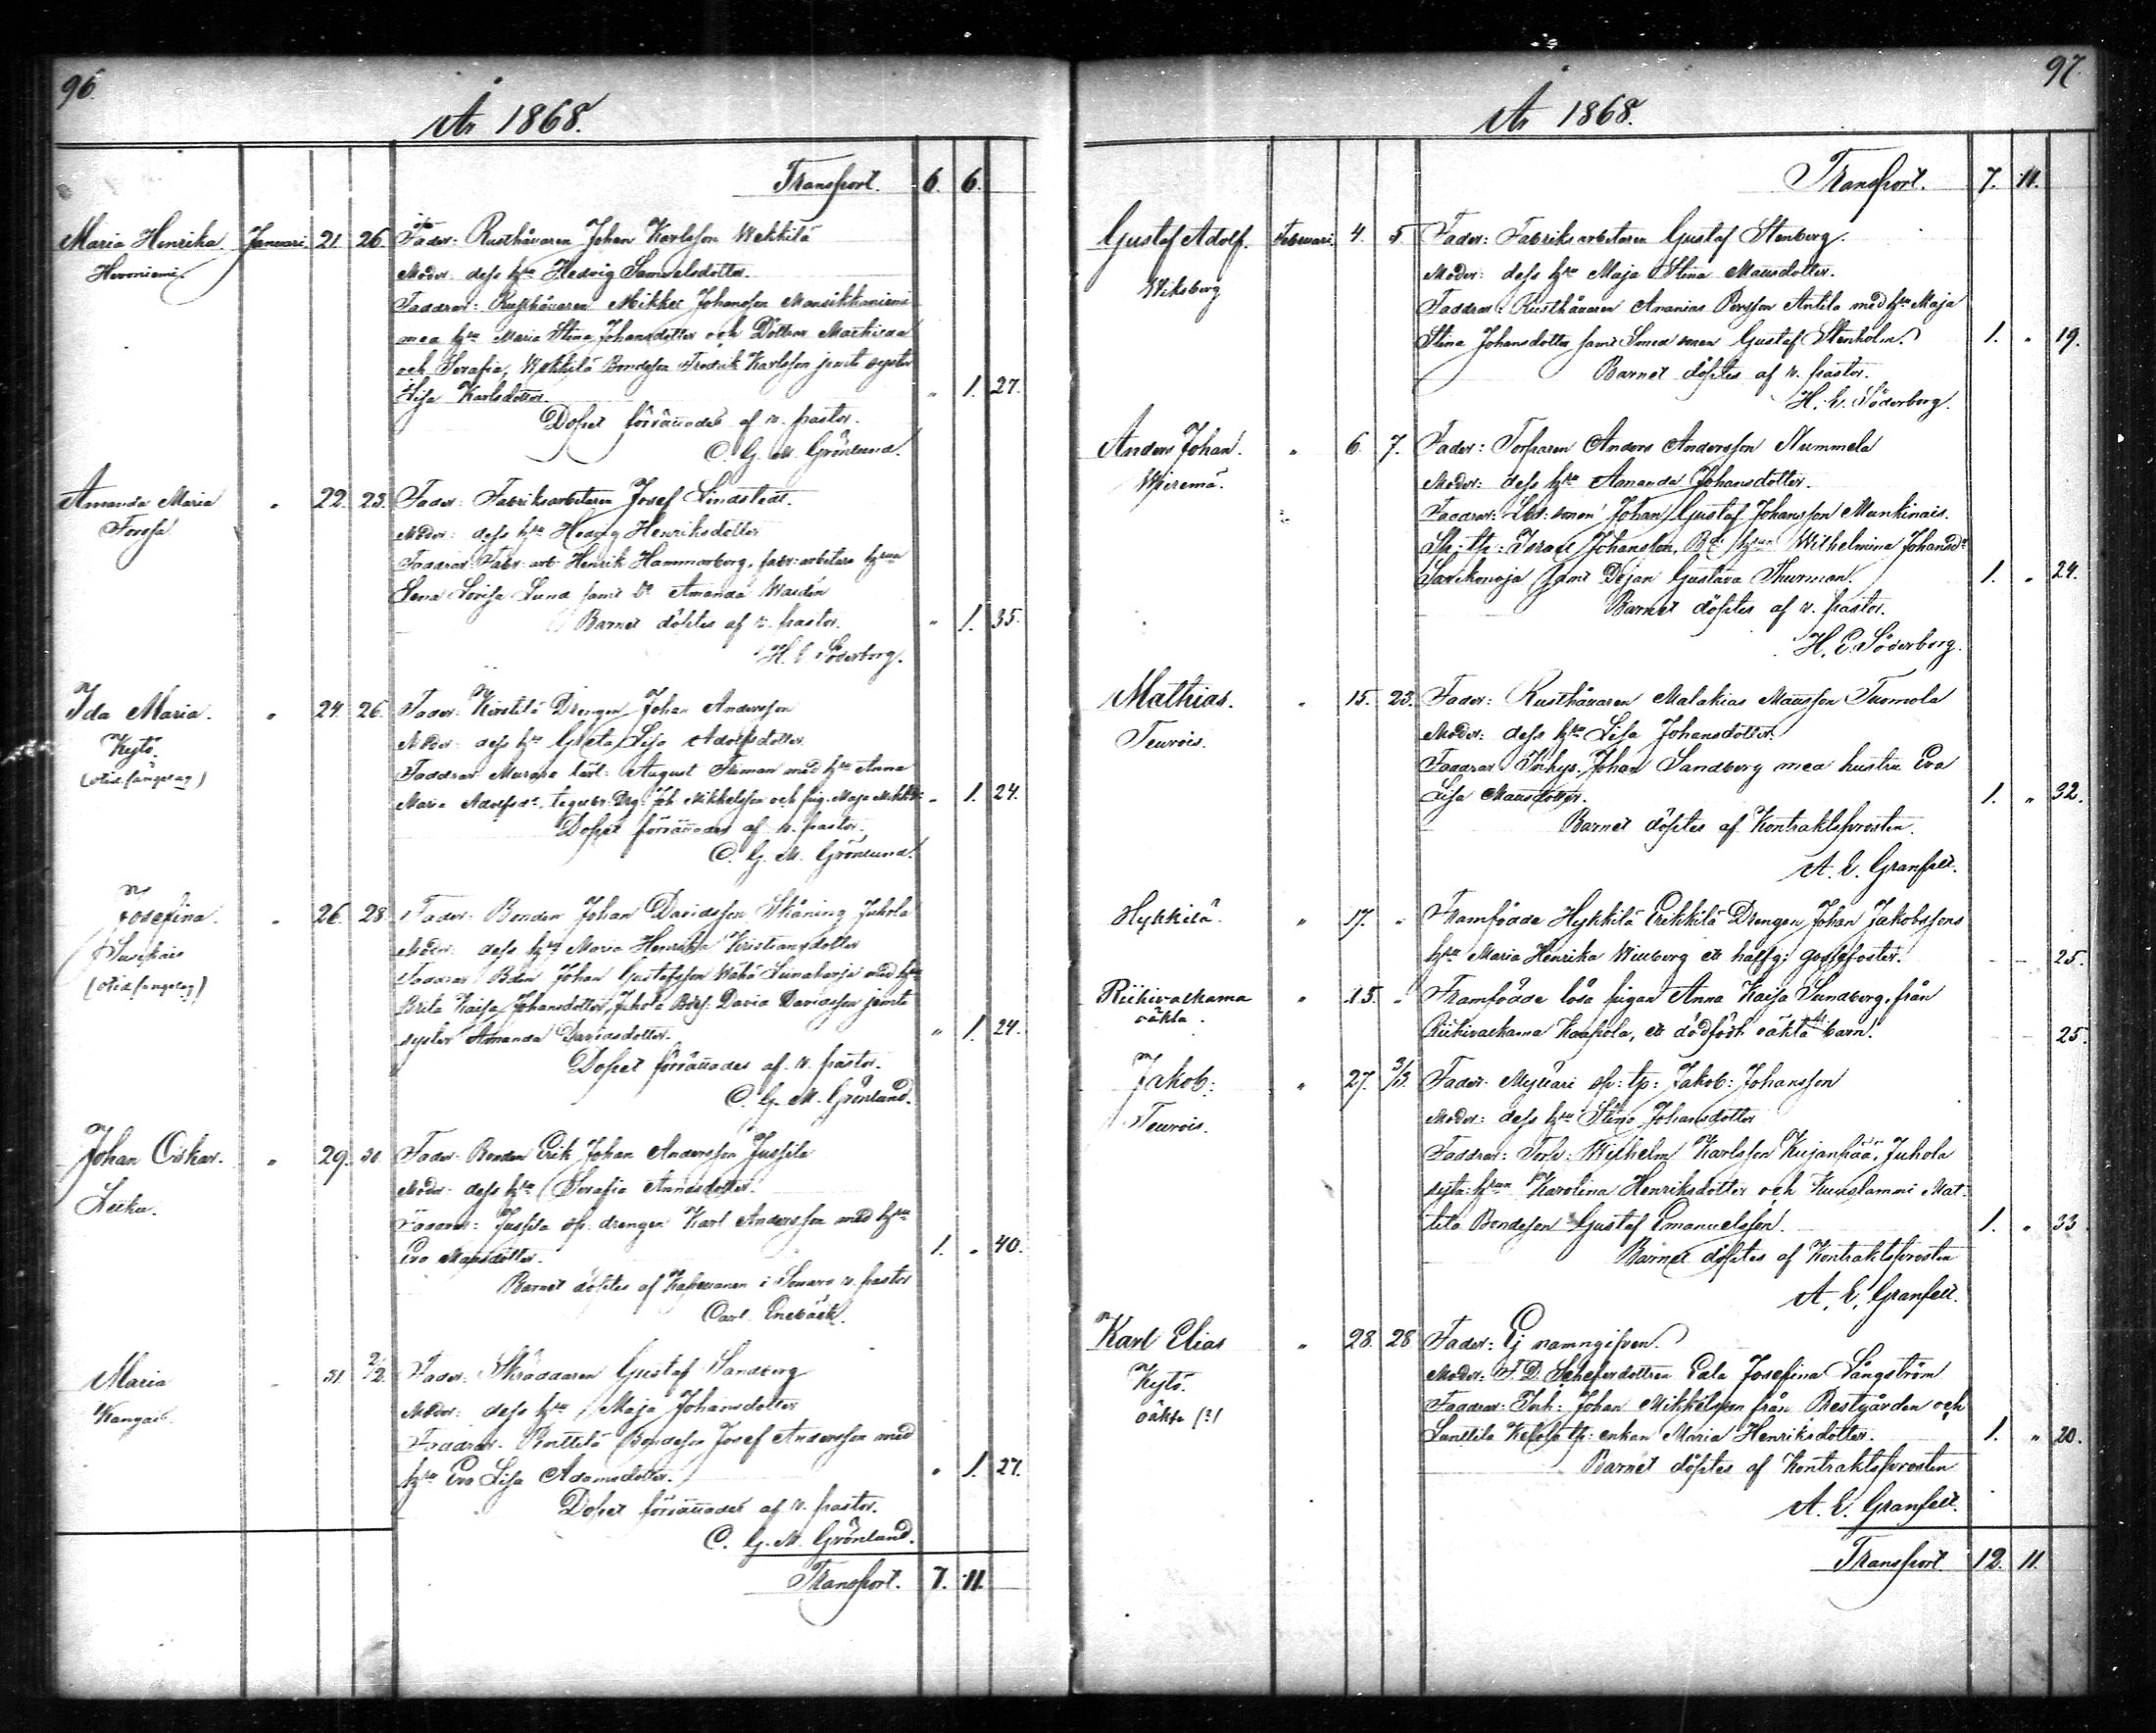 96.
År 1868.
Transport. 6. 6.
Maria Henrika. Januari. 21. 26. Fader: Rusthållaren Johan Karlsson Wekkilä
Moder: dess h:u Hedvig Samuelsdotter.
Faddrar: Rusthållaren Mikkel Johansson Mansikkaniemi
med h:u Maria Stina Johansdotter och Döttrar Mathilda
och Serafia, Wekkilä Bondeson Fredrik Karlsson jemte syster
Lisa Karlsdotter. " 1. 27.
Dopet förrättades af v. pastor.
C. G. M. Grönlund.
Amanda Maria " 22. 23. Fader: Fabriksarbetaren Josef Lindstedt.
Forssa Moder: dess h:u Hedvig Henriksdotter
Faddrar: Fabr: arb: Henrik Hammarberg, fabr: arbetare h:run
Lena Lovisa Lund samt Amanda Waldén
Barnet döptes af v. pastor. " 1. 35.
H. E. Söderborg.
Ida Maria. " 24. 26. Fader: Kirstilä Drengen Johan Andersson
Kyto. Moder: dess h:u Greta Lisa Adolfsdotter
Faddrar: Murare lärl: August Friman med h:u Anna
Maria Adolfsd:r, Drg: Joh. Mikkelsson och pig. Maja " 1. 24.
Dopet förrättades af v. pastor.
C. G. M. Grönlund.
Josefina. " 26. 28. Fader: Bonden Johan Davidsson Skåning Juhola
Susikais Moder: dess h:u Maria Henrika Kristiansdotter
Faddrar: Bden Johan Gustafsson Wähä Lunaharja med h:u
Brita Kaisa Johansdotter, Juhola Bdes: David Davidsson jemte
syster Amanda Davidsdotter. " 1. 24.
Dopet förrättades af v. pastor.
C. G. M. Grönlund.
Johan Oskar. " 29. 30. Fader: Bonden Erik Johan Andersson Jussila
Moder: dess h:u Serafia Annasdotter.
Faddrar: Jussila sp: drengen Karl Andersson med h:u
Eva Matsdotter. 1. " 40.
Barnet döptes af Kapellanen i Somero v. pastor
Carl Enebäck.
Maria " 31. 2/2. Fader: Skräddaren Gustaf Sandberg
Kangais. Moder: dess h:u Maja Johansdotter
Faddrar: Bondeson Josef Andersson med
h:u Eva Lisa Adamsdotter. " 1. 27.
Dopet förrättades af v. pastor.
C. G. M. Grönlund.
Transport. 7. 11.
97.
År 1868.
Transport. 7. 11.
Gustaf Adolf. Februari. 4. 5. Fader: Fabriksarbetaren Gustaf Stenberg.
Moder: dess h:u Maja Stina Mattsdotter.
Wiksberg
Faddrar: Rusthållaren Ananias Persson Antila med h:u Maja
Stina Johansdotter samt Smed sonen Gustaf Stenholm. 1. " 19.
Barnet döptes af v. pastor.
H. E. Söderborg.
Anders Johan. " 6. 7. Fader: Torparen Anders Andersson Nummela
Wieremä. Moder: dess h:u Amanda Johansdotter.
Faddrar: sonen Johan Gustaf Johansson Munkinais.
Israel Johansson, h:run Wilhelmina Johansd:r
Savikonoja samt Dejan Gustava Thurman. 1. " 24.
Barnet döptes af v. pastor.
H. E. Söderborg.
Mathias. " 15. 23. Fader: Rusthållaren Malakias Mattsson Tuomola
Teurois. Moder: dess h:u Lisa Johansdotter.
Faddrar: Inhys. Johan Sandberg med hustru Eva
Lisa Mattsdotter. 1. " 32.
Barnet döptes af Kontraktsprosten.
A. E. Granfelt.
Hykkilä. " 17. " Framfödde Hykkilä Erikkilä Drengen Johan Jakobssons
h:u Maria Henrika Winberg ett halfg: gossefoster. 25.
Riihivalkama " 15. " Framfödde lösa pigan Anna Kaisa Sundberg, från
oäkta. Riihivalkama Kaapola, ett dödfödt oäkta barn. 25.
Jakob: " 27. 3/3. Fader: Mylläri sp: tp: Jakob: Johansson
Moder: dess h:u Stina Johansdotter
Teurois.
Faddrar: Torp: Wilhelm Karlsson Kujanpää, Juhola
h:run Karolina Henriksdotter och Kuuslammi Mat-
tila Bondeson Gustaf Emanuelsson. 1. " 33.
Barnet döptes af Kontraktsprosten
A. E. Granfelt.
Karl Elias " 28. 28. Fader: Ej namngifven.
Kyto. Moder: F. D. Scheferdottren Eda Josefina Långström
oäkta (?) Faddrar: Inh: Johan Mikkelsson från Prestgården och
Lunttila tp: enkan Maria Henriksdotter. 1. " 20.
Barnet döptes af Kontraktsprosten
A. E. Granfelt.
Transport 12. 11.